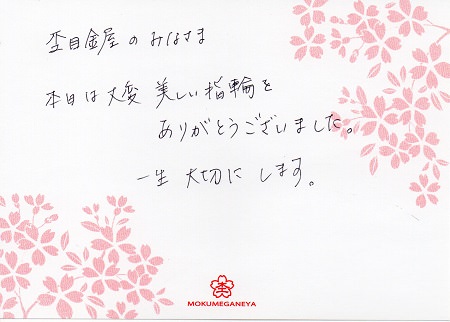 杢目金屋のみなさま
本日は大変 美しい指輪を
ありがとうございました。
一生 大切に します。
杢
MOKUMEGANEYA